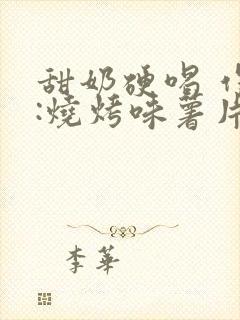 甜奶硬唱
:燒烤味薯片
李華